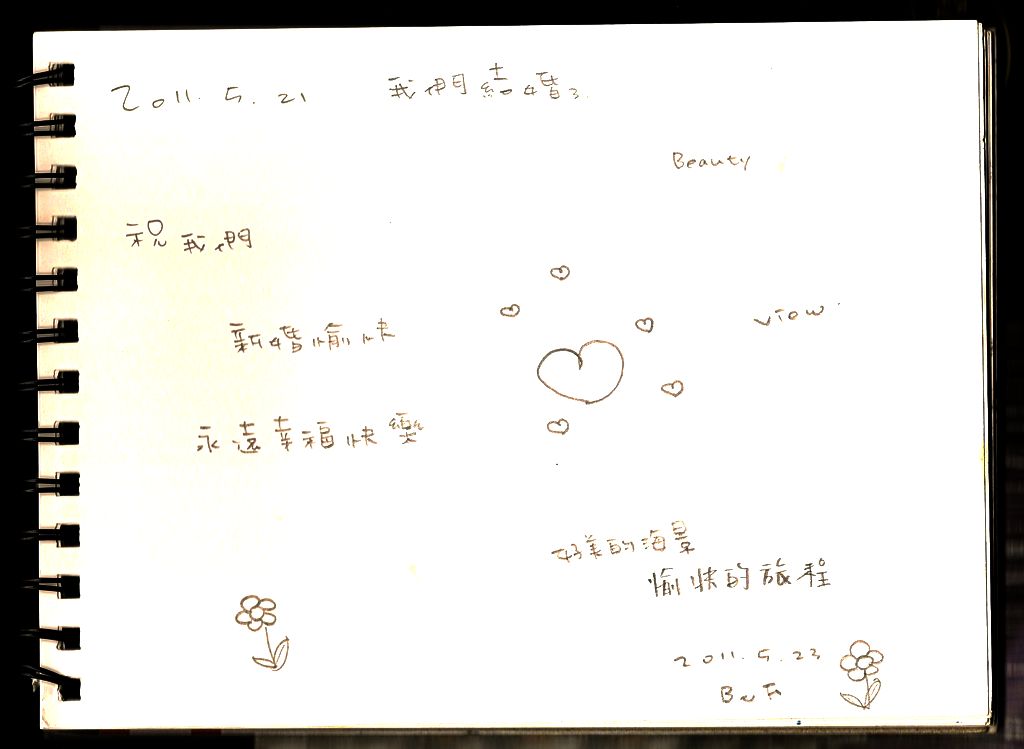 2011. 5. 21 我們結婚了.
Beauty
祝我們
view
新婚愉快
永遠幸福快樂
好美的海景
愉快的旅程
2011. 5. 23